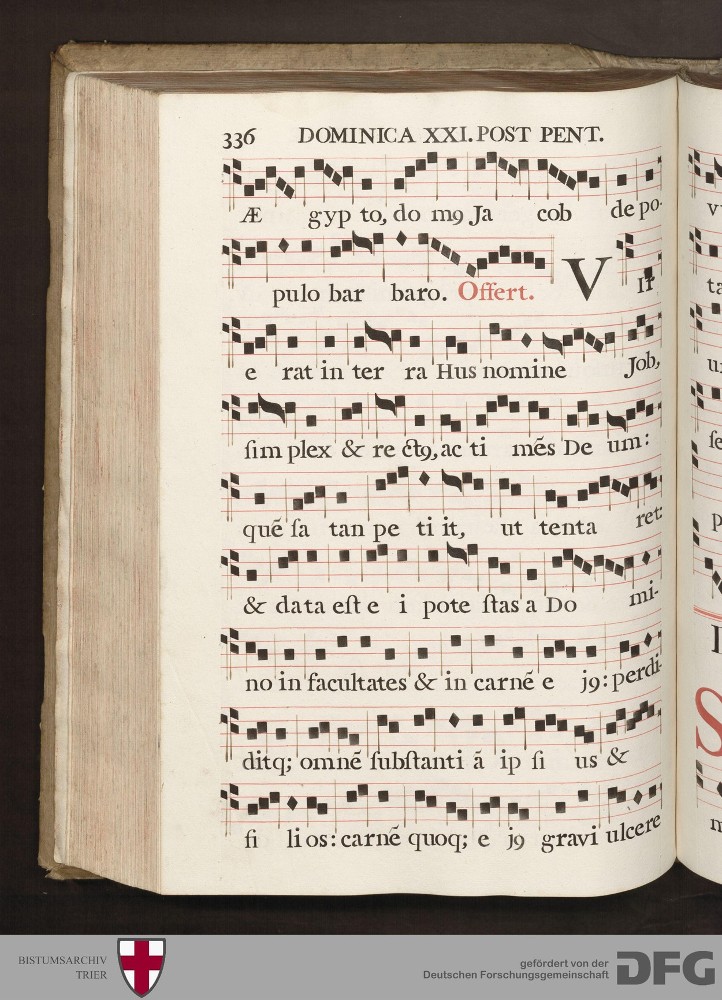 336 DOMINICA XXI. POST PENT.
Æ gyp to, do m9 Ja cob de po-
pulo bar baro. Offert. V Ir
e rat in ter ra Hus nomine Job,
ſim plex & re ct9, ac ti mẽs De um:
quẽ ſa tan pe ti it, ut tenta ret:
& data eſt e i pote ſtas a Do mi-
no in facultates & in carnẽ e j9: perdi-
ditq; omnẽ ſubſtanti ã ip ſi us &
fi li os: carnẽ quoq; e j9 gravi ulcere
BISTUMSARCHIV
TRIER
gefördert von der
Deutschen Forschungsgemeinschaft
DFG